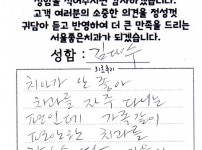 성함을 적어주시면 감사하겠습니다.
고객 여러분의 소중한 의견을 정성껏
귀담아 듣고 반영하여 더 큰 만족을 드리는
서울좋은치과가 되겠습니다.
성함 : 김대수
치료후기
치아가 안 좋아
치과를 자주 다니는
편인데 가족같이
편안한 치과를